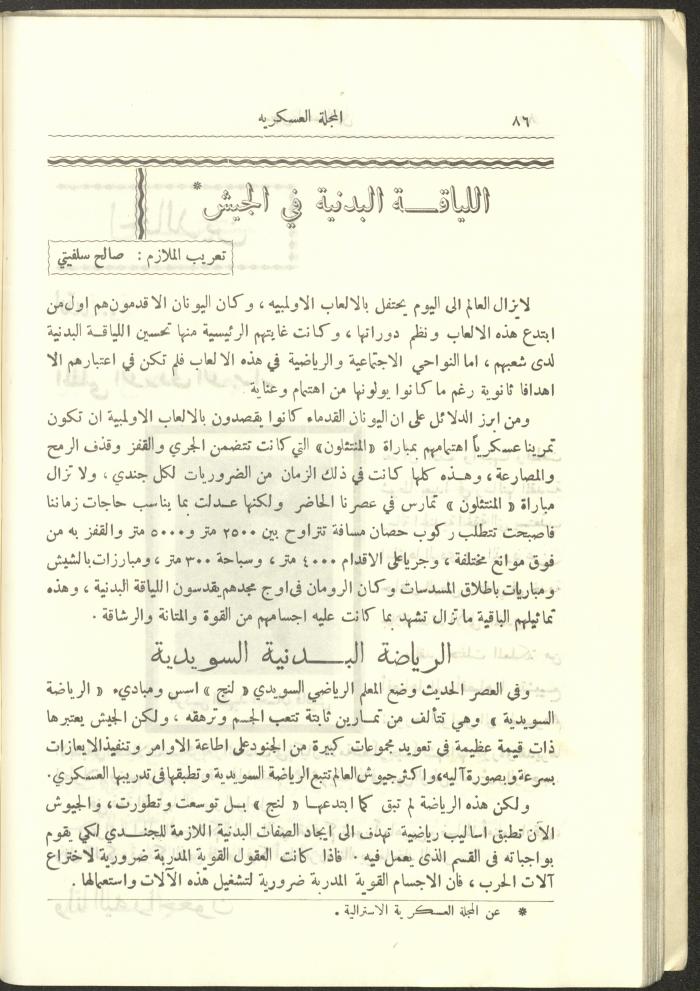 ٨٦
المجلة العسكريه
اللياقـــة البدنية في الجيش*
تعريب الملازم : صالح سلفيتي
لايزال العالم الى اليوم يحتفل بالالعاب الاولمبيه ، وكان اليونان الاقدمون هم اول من
ابتدع هذه الالعاب ونظم دوراتها ، وكانت غايتهم الرئيسية منها تحسين اللياقـة البدنية
لدى شعبهم ، اما النواحي الاجتماعية والرياضية في هذه الالعاب فلم تكن في اعتبارهم الا
اهدافا ثانوية رغم ما كانوا يولونها من اهتمام وعناية
ومن ابرز الدلائل على ان اليونان القدماء كانوا يقصدون بالالعاب الاولمبية ان تكون
تمرينا عسكرياً اهتمامهم بمباراة «المنتثلون» التي كانت تتضمن الجري والقفز وقذف الرمح
والمصارعة ، وهـذه كلها كانت في ذلك الزمان من الضروريات لكل جندي ، ولا تزال
مباراة « المنتثلون » تمارس في عصرنا الحاضر ولكنها عـدلت بما يناسب حاجات زماننا
فاصبحت تتطلب ركوب حصان مسافة تتراوح بين ٢٥٠٠ متر و٥٠٠٠ متر والقفز به من
فوق موانع مختلفة ، وجريا على الاقدام ٤٠٠٠ متر ، وسباحة ٣٠٠ متر ، ومبارزات بالشيش
ومباريات باطلاق المسدسات وكان الرومان في اوج مجدهم يقدسون اللياقة البدنية ، وهذه
تماثيلهم الباقية ما تزال تشهد بما كانت عليه اجسامهم من القوة والمتانة والرشاقة .
الرياضة البـــدنية السويدية
وفى العصر الحديث وضع المعلم الرياضي السويدي « لنج » اسس ومباديء « الرياضة
السويدية » وهي تتألف من تمـارين ثابتة تتعب الجـم وترهقه ، ولكن الجيش يعتبرها
ذات قيمة عظيمة فى تعويد مجموعات كبيرة من الجنود على اطاعة الاوامر وتنفيذ الايعازات
بسرعة وبصورة آليه، واكثر جيوش العالم تتبع الرياضة السويدية وتطبقها فى تدريبها العسكري.
ولكن هذه الرياضة لم تبق كما ابتدعهـا « لنج » بـل توسعت وتطورت ، والجيوش
الآن تطبق اساليب رياضية تهدف الى ايجاد الصفات البدنية اللازمة للجنـدي لكي يقوم
بواجباته فى القسم الذى يعمل فيه . فاذا كانت العقول القوية المدربة ضرورية لاختراع
آلات الحرب ، فان الاجسام القوية المدربة ضرورية لتشغيل هذه الآلات واستعمالها .
* عن المجلة العسكرية الاسترالية .